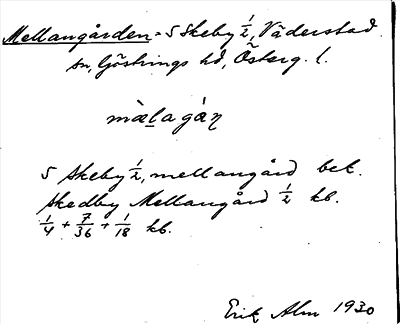 Mellangården = 5 Skeby ½, Väderstad
sn, Göstrings hd, Österg. l.
mæ̀lagáɳ
5 Skeby ½, mellangård bet.
Skedby Mellangård ½ kb.
1/4 + 7/36 + 1/18 kb.
Erik Alm 1930